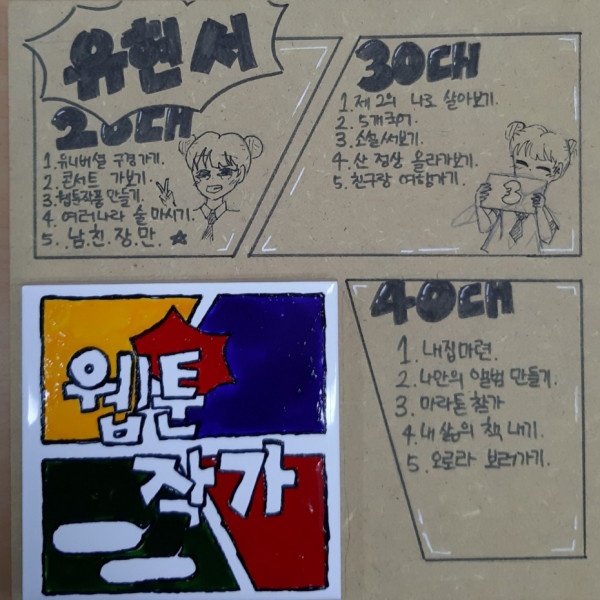 유현서
20대
1. 유니버셜 구경가기.
2. 콘서트 가보기.
3. 웹툰작품 만들기.
4. 여러나라 술 마시기.
5. 남.친.장.만.
30대
1. 제 2의 나로 살아보기.
2. 5개국어.
3. 소설써보기.
4. 산 정상 올라가보기.
5. 친구랑 여행가기.
3
웹툰
작가
40대
1. 내집마련.
2. 나만의 앨범 만들기.
3. 마라톤 참가
4. 내 삶의 책 내기.
5. 오로라 보러가기.